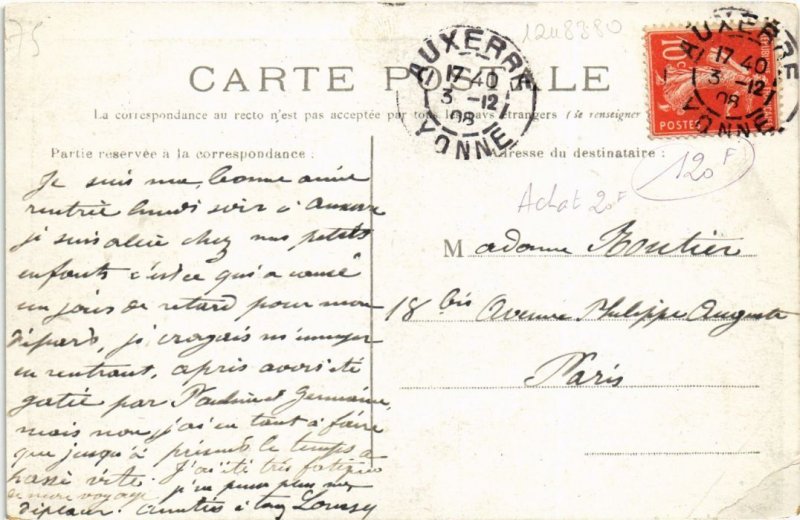 75
1248380
CARTE POSTALE
La correspondance au recto n'est pas acceptée par tous les pays étrangers (Se renseigner
Partie réservée à la correspondance :
Adresse du destinataire :
AUXERRE
17 40
3 -12
08
YONNE
AUXERRE
17 40
3 -12
08
YONNE
10c
POSTES
120F
Achat 20F
Madame Routier
18 bis Avenue Philippe Auguste
Paris
Je suis ma bonne amie
rentrée lundi soir à Auxerre
je suis allée chez mes petits
enfants c'est ce qui a causé
un jour de retard pour mon
départ, je croyais m'ennuyer
en rentrant, après avoir été
gâtée par Pauline et Germaine,
mais non j'ai eu tant à faire
que jusqu'à présent le temps a
passé vite. J'ai été très fatiguée
de mon voyage je ne peux plus me
déplacer. Amitiés à tous Louise